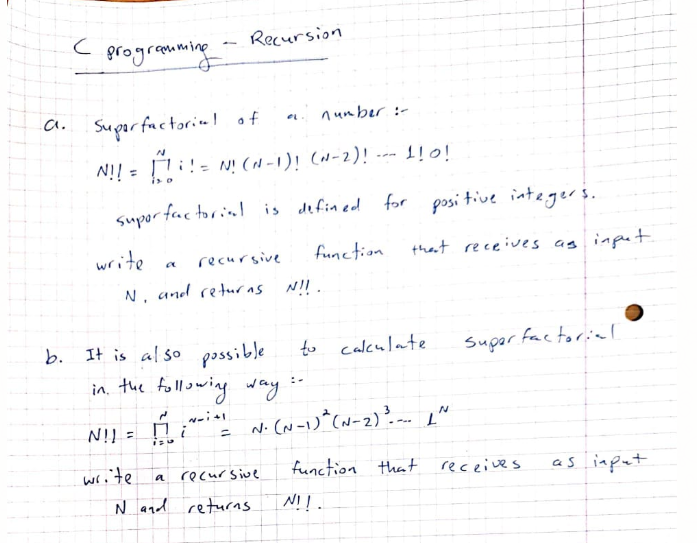 C programming - Recursion
a. Superfactorial of a number :-
N!! = ∏_{i=0}^{N} i! = N! (N-1)! (N-2)! ... 1! 0!
superfactorial is defined for positive integers.
write a recursive function that receives as input
N, and returns N!!.
b. It is also possible to calculate superfactorial
in the following way :-
N!! = ∏_{i=0}^{N} i^{N-i+1} = N·(N-1)^2 (N-2)^3 ... 1^N
write a recursive function that receives as input
N and returns N!!.